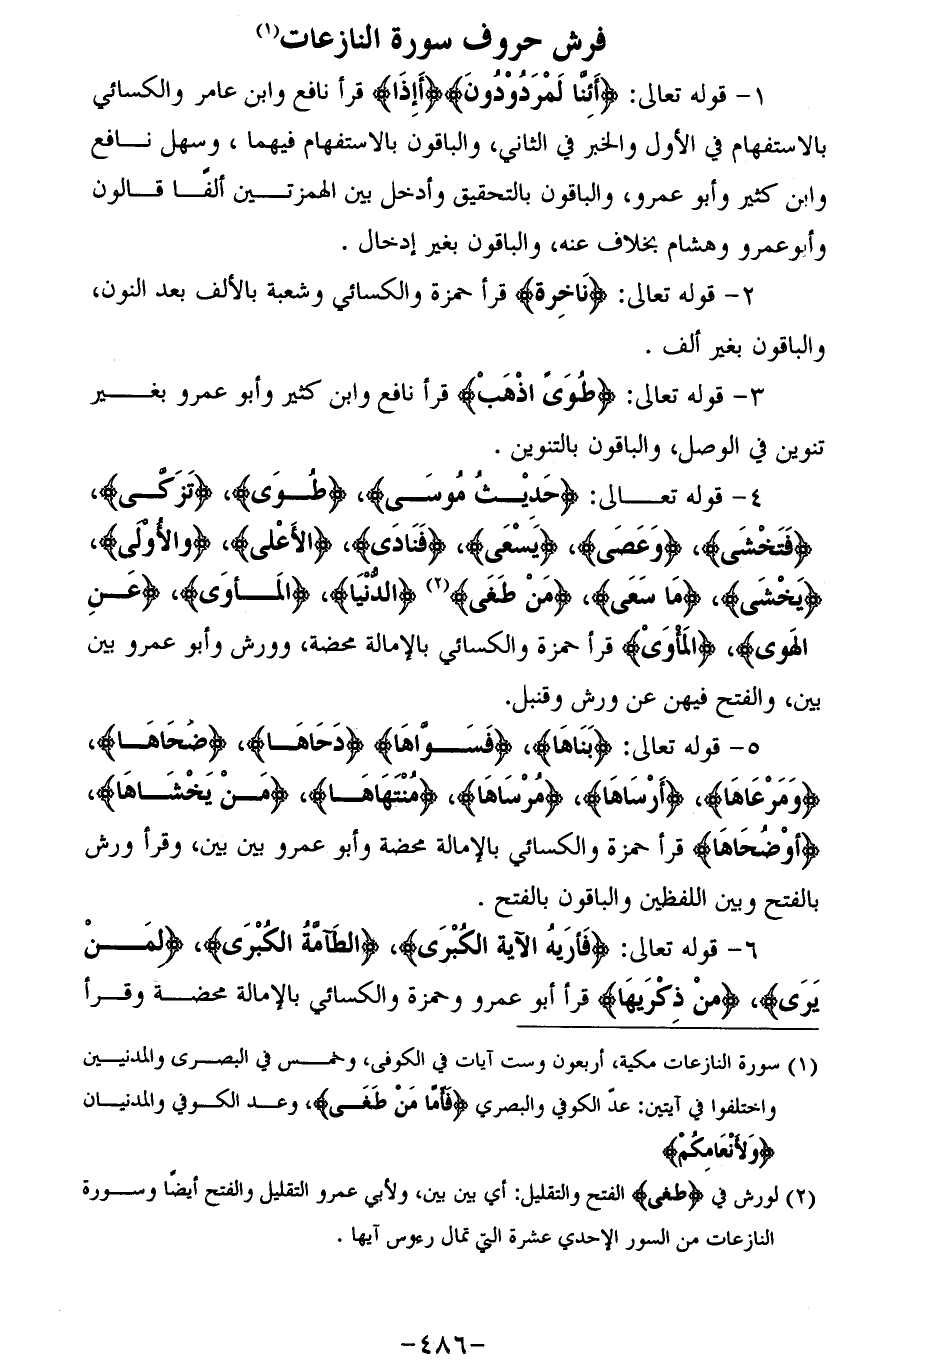 فرش حروف سورة النازعات(١)
١- قوله تعالى: ﴿أَئِنَّا لَمَرْدُوْدُونَ﴾﴿أَإِذَا﴾ قرأ نافع وابن عامر والكسائي
بالاستفهام في الأول والخبر في الثاني، والباقون بالاستفهام فيهما ، وسهل نافع
وابن كثير وأبو عمرو، والباقون بالتحقيق وأدخل بين الهمزتين ألفًا قالون
وأبوعمرو وهشام بخلاف عنه، والباقون بغير إدخال .
٢- قوله تعالى: ﴿نَاخِرة﴾ قرأ حمزة والكسائي وشعبة بالألف بعد النون،
والباقون بغير ألف .
٣- قوله تعالى: ﴿طُوَىً اذْهَبْ﴾ قرأ نافع وابن كثير وأبو عمرو بغير
تنوين في الوصل، والباقون بالتنوين .
٤- قوله تعالى: ﴿حَدِيْثُ مُوسَى﴾، ﴿طُوَى﴾، ﴿تَزَكَّى﴾،
﴿فَتَخْشَى﴾، ﴿وَعَصَى﴾، ﴿يَسْعَى﴾، ﴿فَنَادَى﴾، ﴿الأَعْلى﴾، ﴿والأُوْلَى﴾،
﴿يَخْشَى﴾، ﴿مَا سَعَى﴾، ﴿مَنْ طَغَى﴾(٢) ﴿الدُّنْيَا﴾، ﴿المَأوَى﴾، ﴿عَنِ
الهَوى﴾، ﴿المَأْوَىْ﴾ قرأ حمزة والكسائي بالإمالة محضة، وورش وأبو عمرو بين
بين، والفتح فيهن عن ورش وقنبل.
٥- قوله تعالى: ﴿بَنَاهَا﴾، ﴿فَسَوَّاهَا﴾ ﴿دَحَاهَا﴾، ﴿ضُحَاهَا﴾،
﴿وَمَرْعَاهَا﴾، ﴿أَرْسَاهَا﴾، ﴿مُرْسَاهَا﴾، ﴿مُنْتَهَاهَا﴾، ﴿مَنْ يَخْشَاهَا﴾،
﴿أوْضُحَاهَا﴾ قرأ حمزة والكسائي بالإمالة محضة وأبو عمرو بين بين، وقرأ ورش
بالفتح وبين اللفظين والباقون بالفتح .
٦- قوله تعالى: ﴿فَأرَيهُ الآية الكُبْرَى﴾، ﴿الطَآمَّةُ الكُبْرَى﴾، ﴿لمَنْ
يَرَى﴾، ﴿منْ ذِكْرَيهَا﴾ قرأ أبو عمرو وحمزة والكسائي بالإمالة محضة وقرأ
(١) سورة النازعات مكية، أربعون وست آيات في الكوفى، وخمس في البصرى والمدنيين
واختلفوا في آيتين: عدّ الكوفي والبصري ﴿فَأَمَّا مَنْ طَغَى﴾، وعد الكوفي والمدنيان
﴿وَلأَنْعَامِكُمْ﴾
(٢) لورش في ﴿طغى﴾ الفتح والتقليل: أي بين بين، ولأبي عمرو التقليل والفتح أيضًا وسورة
النازعات من السور الإحدي عشرة التي تمال رءوس آيها .
-٤٨٦-